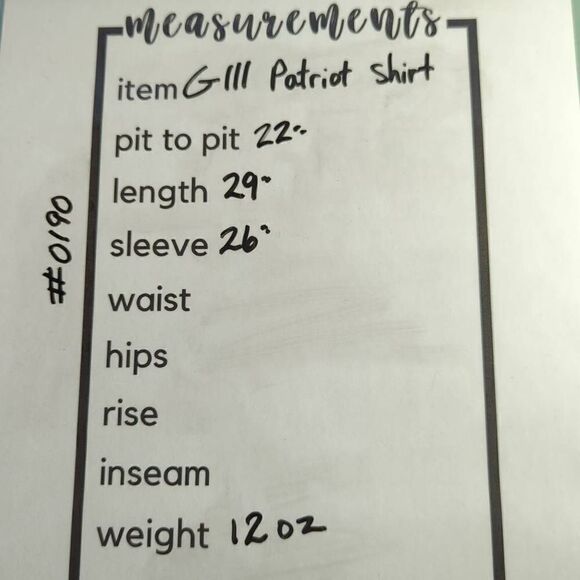 measurements
item GIII Patriot Shirt
pit to pit 22"
length 29"
sleeve 26"
waist
hips
rise
inseam
weight 12 oz
#0190